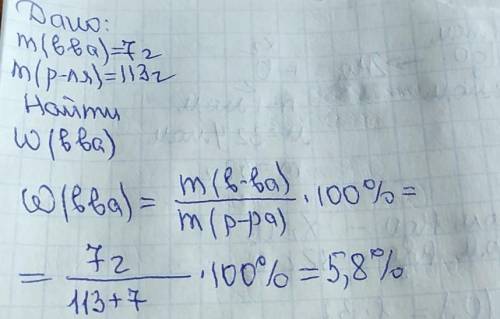 Дано:
m(вва)=7г
m(р-ля)=113г
Найти
W(вва)
W(вва) = m(в-ва) / m(р-ра) · 100% =
= 7г / 113+7 · 100% = 5,8%